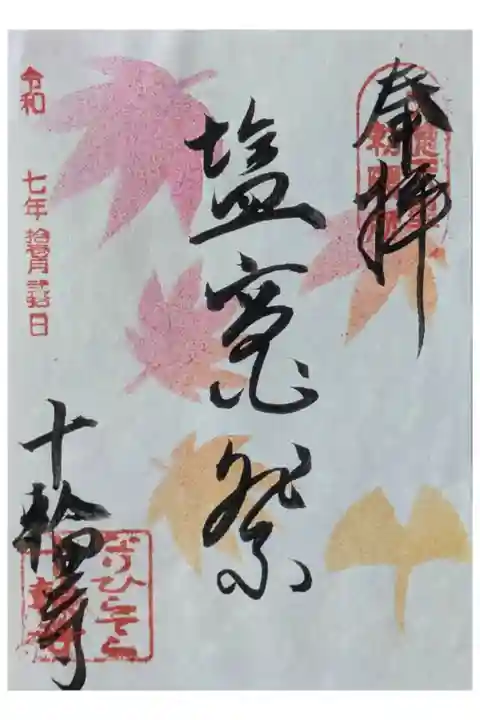 奉拝
塩竈祭
令和 七年 拾壱月 弐拾日
十輪寺
なりひらでら